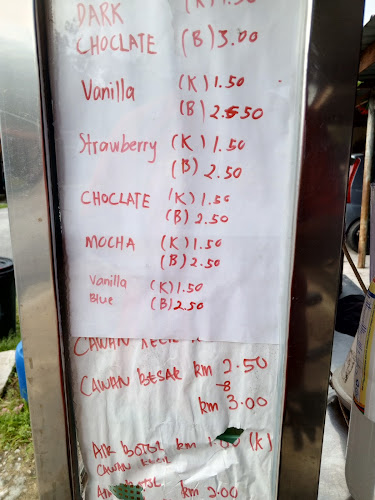 DARK (K) 1.50
CHOCLATE (B) 3.00
Vanilla (K) 1.50
(B) 2.50
Strawberry (K) 1.50
(B) 2.50
CHOCLATE (K) 1.50
(B) 2.50
MOCHA (K) 1.50
(B) 2.50
Vanilla (K) 1.50
Blue (B) 2.50
CAWAN KECIL
CAWAN BESAR km 2.50
-8
km 3.00
AIR BOTOL km 1.00 (K)
CAWAN KECIL
km 2.00